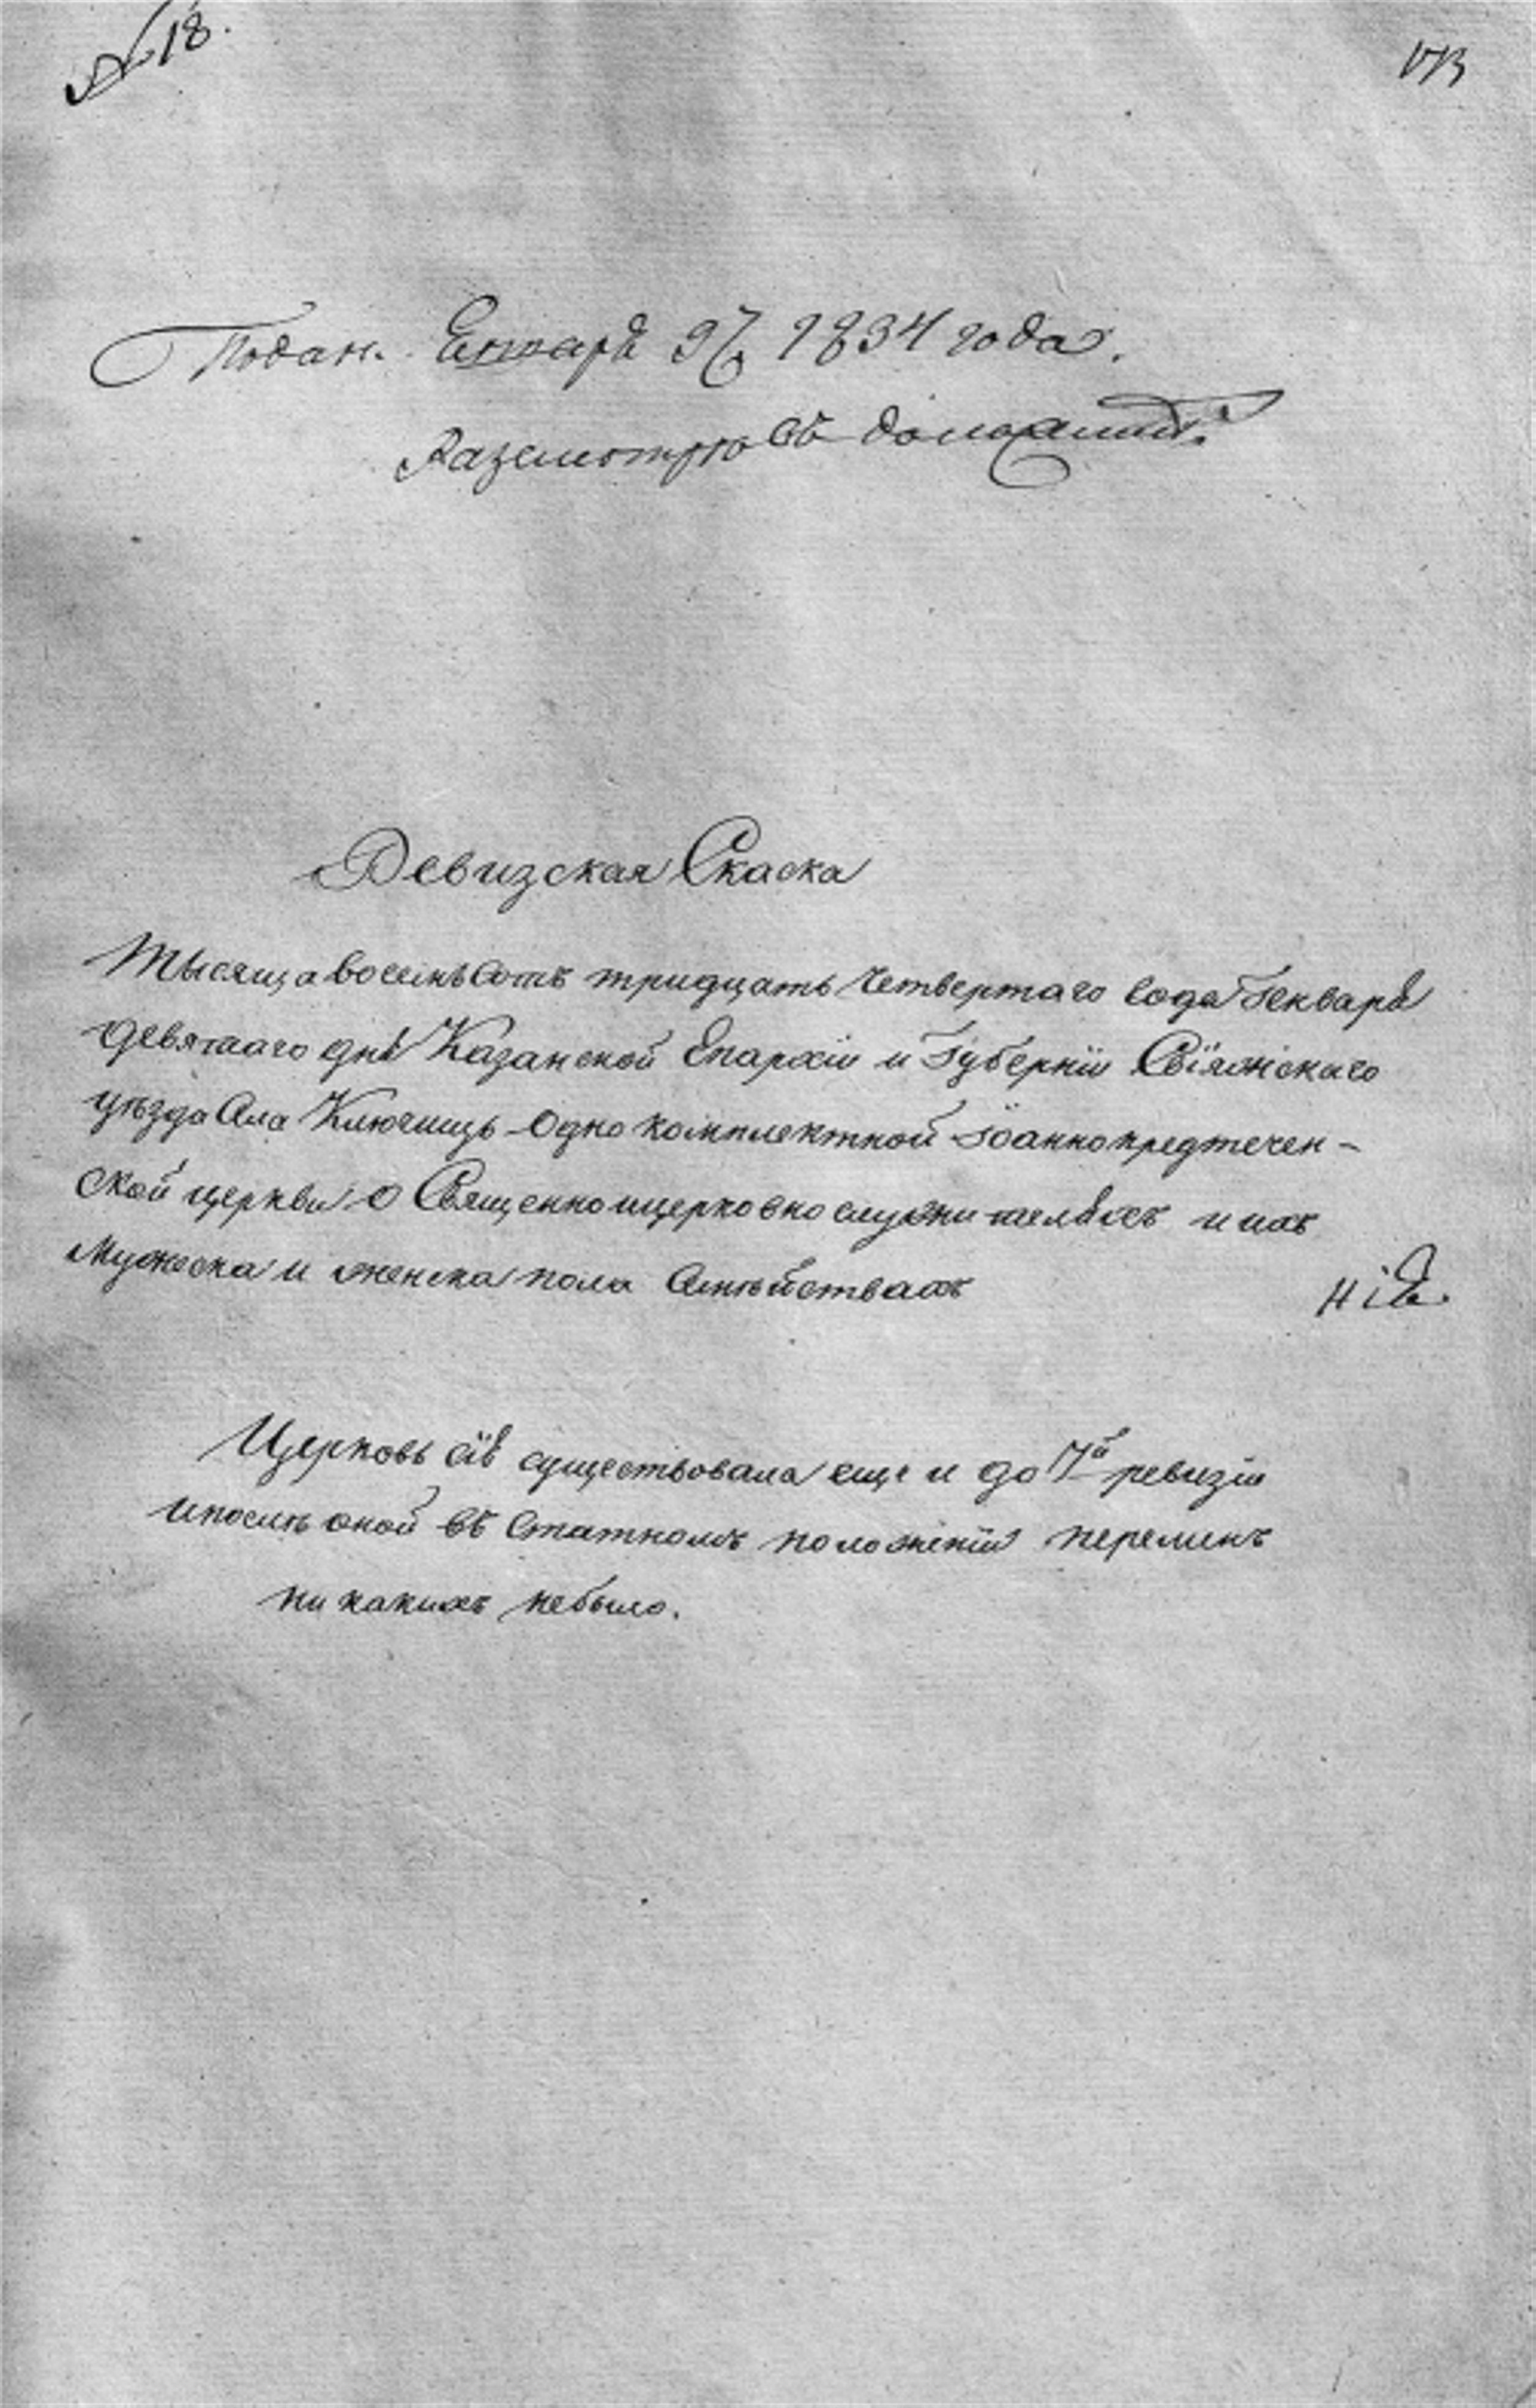 № 18.
173
Подан. Енваря 9го 1834 года.
Разсмотрю въ
Ревизская Скаска
Тысяща восемьсотъ тридцать четвертаго года Генваря
девятаго дня Казанской Епархіи и Губерніи Свіяжскаго
уѣзда Села Ключищъ Однокомплектной Іоаннопредтечен-
ской церкви о Священноицерковнослужителяхъ и ихъ
мужеска и женска пола Семѣйствахъ
Церковь сія существовала еще и до 7й ревизіи
ипослѣ оной въ статномъ положеніи переменъ
ни какихъ небыло.